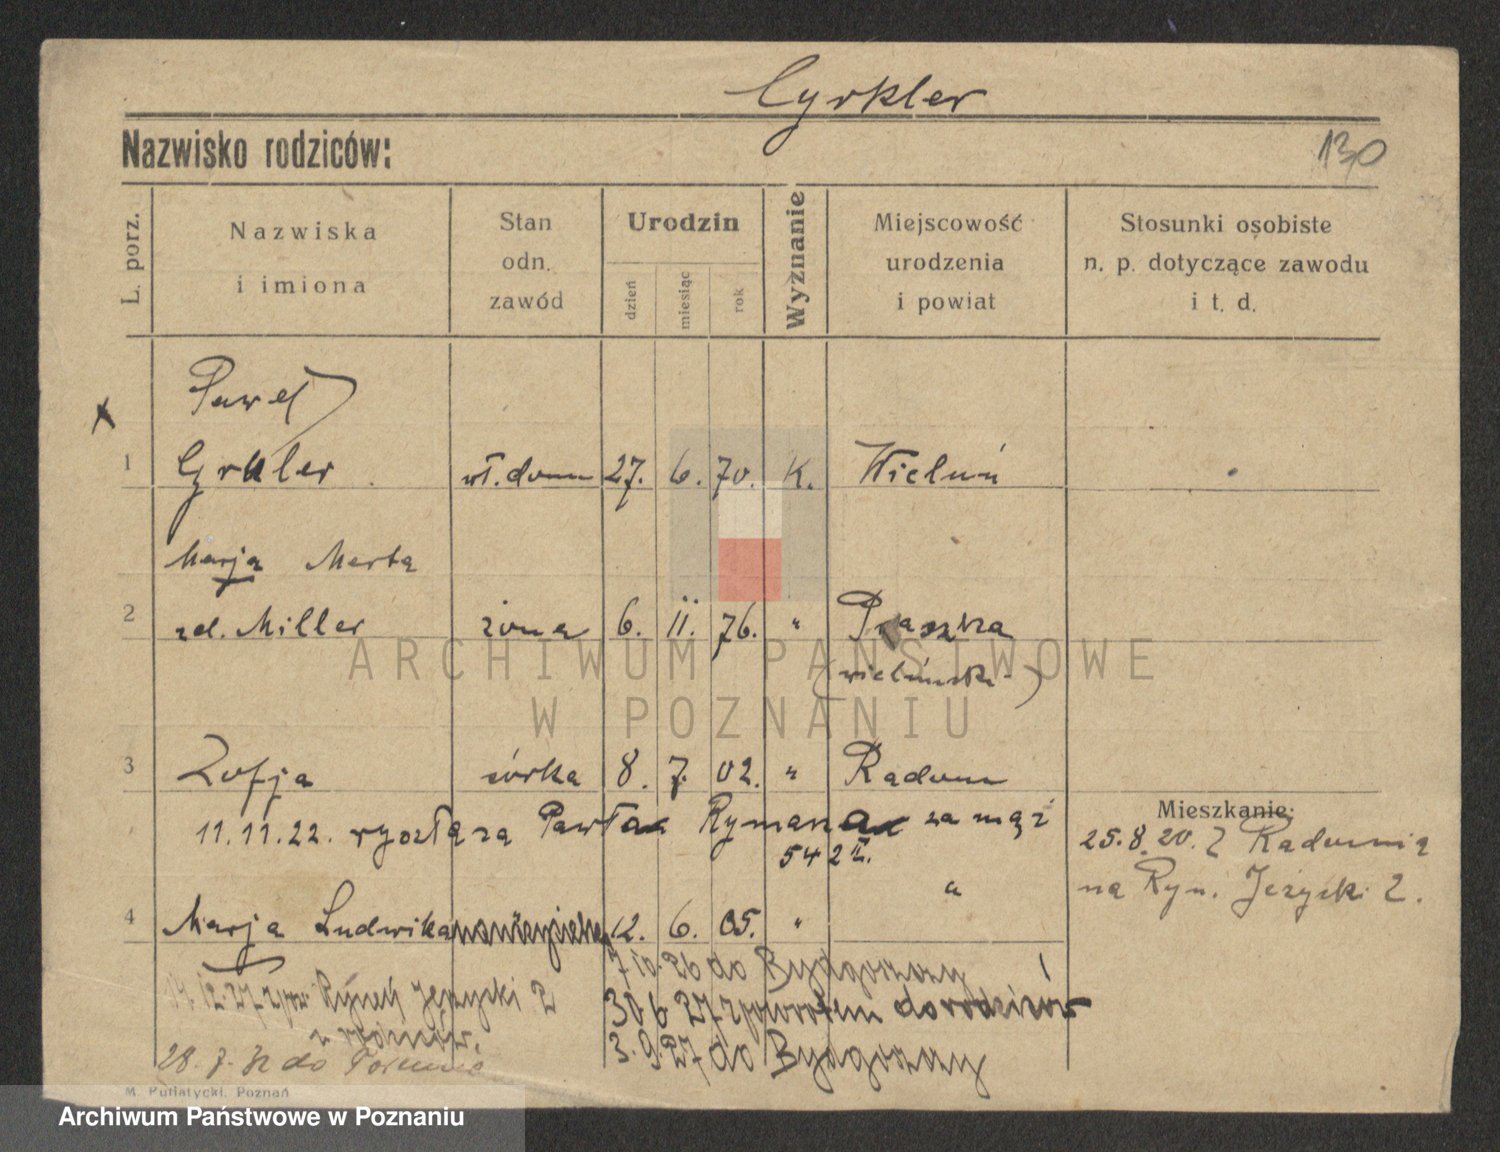 Cyrkler
Nazwisko rodziców:
130
L. porz.
Nazwiska
i imiona
Stan
odn.
zawód
Urodzin
dzień
miesiąc
rok
Wyznanie
Miejscowość
urodzenia
i powiat
Stosunki osobiste
n. p. dotyczące zawodu
i t. d.
Paweł
1 Cyrkler wł. domu 27. 6. 70. K. Wieluń
Marja Marta
2 zd. Miller żona 6. II. 76. " Praszka
(wieluński)
3 Zofja córka 8. 7. 02. " Radom
11.11.22. wyszła za Pawła Rymana za mąż
542 II.
Mieszkanie:
25.8.20. Z Radomia
na Ryn. Jeżycki 2.
4 Marja Ludwika nauczycielka 12. 6. 05. " "
7 10. 26 do Bydgoszczy
14.12.27 Rynek Jeżycki 2
30 6 27 z powrotem do rodziców
u rodziców.
3. 9. 27 do Bydgoszczy
28. 7. 32 do Torunia
M. Putiatycki, Poznań
ARCHIWUM PAŃSTWOWE
W POZNANIU
Archiwum Państwowe w Poznaniu